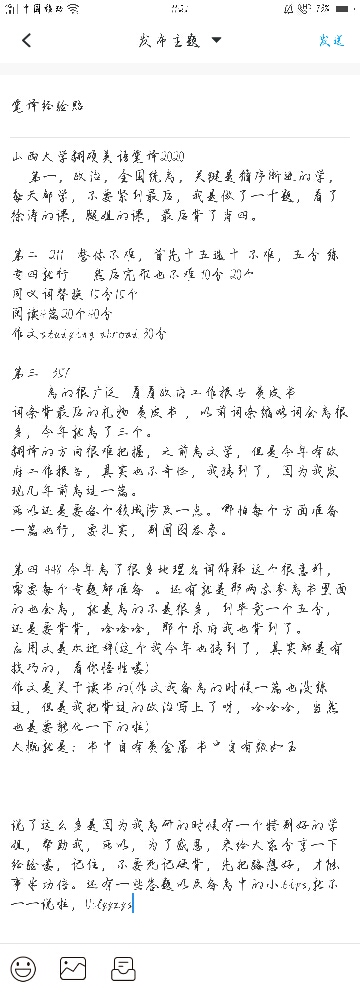 中国移动
73%
发布主题
发送
笔译经验贴
山西大学翻硕英语笔译2020
第一，政治，全国统考，关键是循序渐进的学，
每天都学，不要紧到最后，我是做了一千题，看了
徐涛的课，腿姐的课，最后背了肖四。
第二 211 整体不难，首先十五选十 不难，五分 练
专四就行 然后完形也不难 10分 20个
同义词替换 15分15个
阅读4篇20个40分
作文studying abroad 30分
第三 357
考的很广泛 看看政府工作报告 黄皮书
词条背最后的礼物 黄皮书 ，以前词条缩略词会考很
多，今年就考了三个。
翻译的方向很难把握，之前考文学，但是今年有政
府工作报告，其实也不奇怪，我猜到了，因为我发
现几年前考过一篇。
所以还是要各个领域涉及一点。哪怕每个方面准备
一篇也行，要扎实，别囫囵吞枣。
第四 448 今年考了很多地理名词解释 这个很意外，
需要每个专题都准备 。还有就是那两本参考书里面
的也会考，就是考的不是很多，但毕竟一个五分，
还是要背背，哈哈哈，那个乐府我也背到了。
应用文是欢迎辞(这个我今年也猜到了，其实都是有
技巧的，看你悟性喽)
作文是关于读书的(作文我备考的时候一篇也没练
过，但是我把背过的政治写上了呀，哈哈哈，当然
也是要转化一下的啦)
大概就是：书中自有黄金屋 书中自有颜如玉
说了这么多是因为我考研的时候有一个特别好的学
姐，帮助我，所以，为了感恩，来给大家分享一下
经验喽，记住，不要死记硬背，先把路想好，才能
事半功倍。还有一些答题以及备考中的小tips,就不
一一说啦，